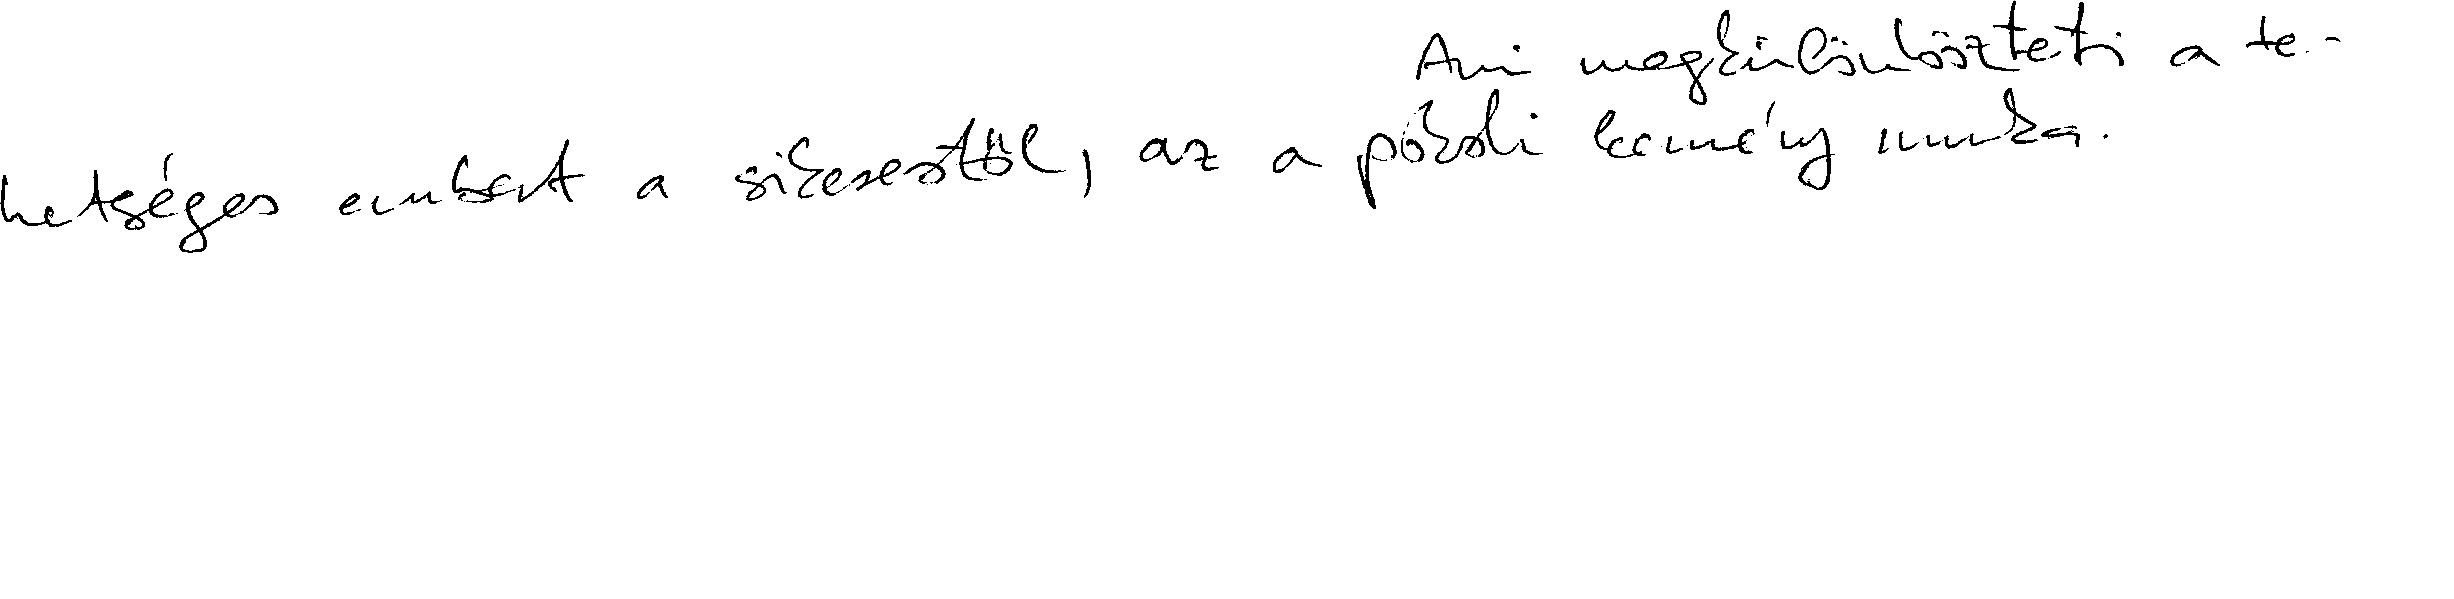 Ami megkülönbözteti a te-
hetséges embert a sikerestől, az a pokoli kemény munka.